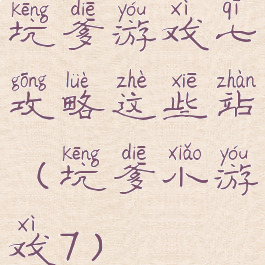 kēng diē yóu xì qī
坑爹游戏七
gōng lüè zhè xiē zhàn
攻略这些站
kēng diē xiǎo yóu
（坑爹小游
xì
戏7）